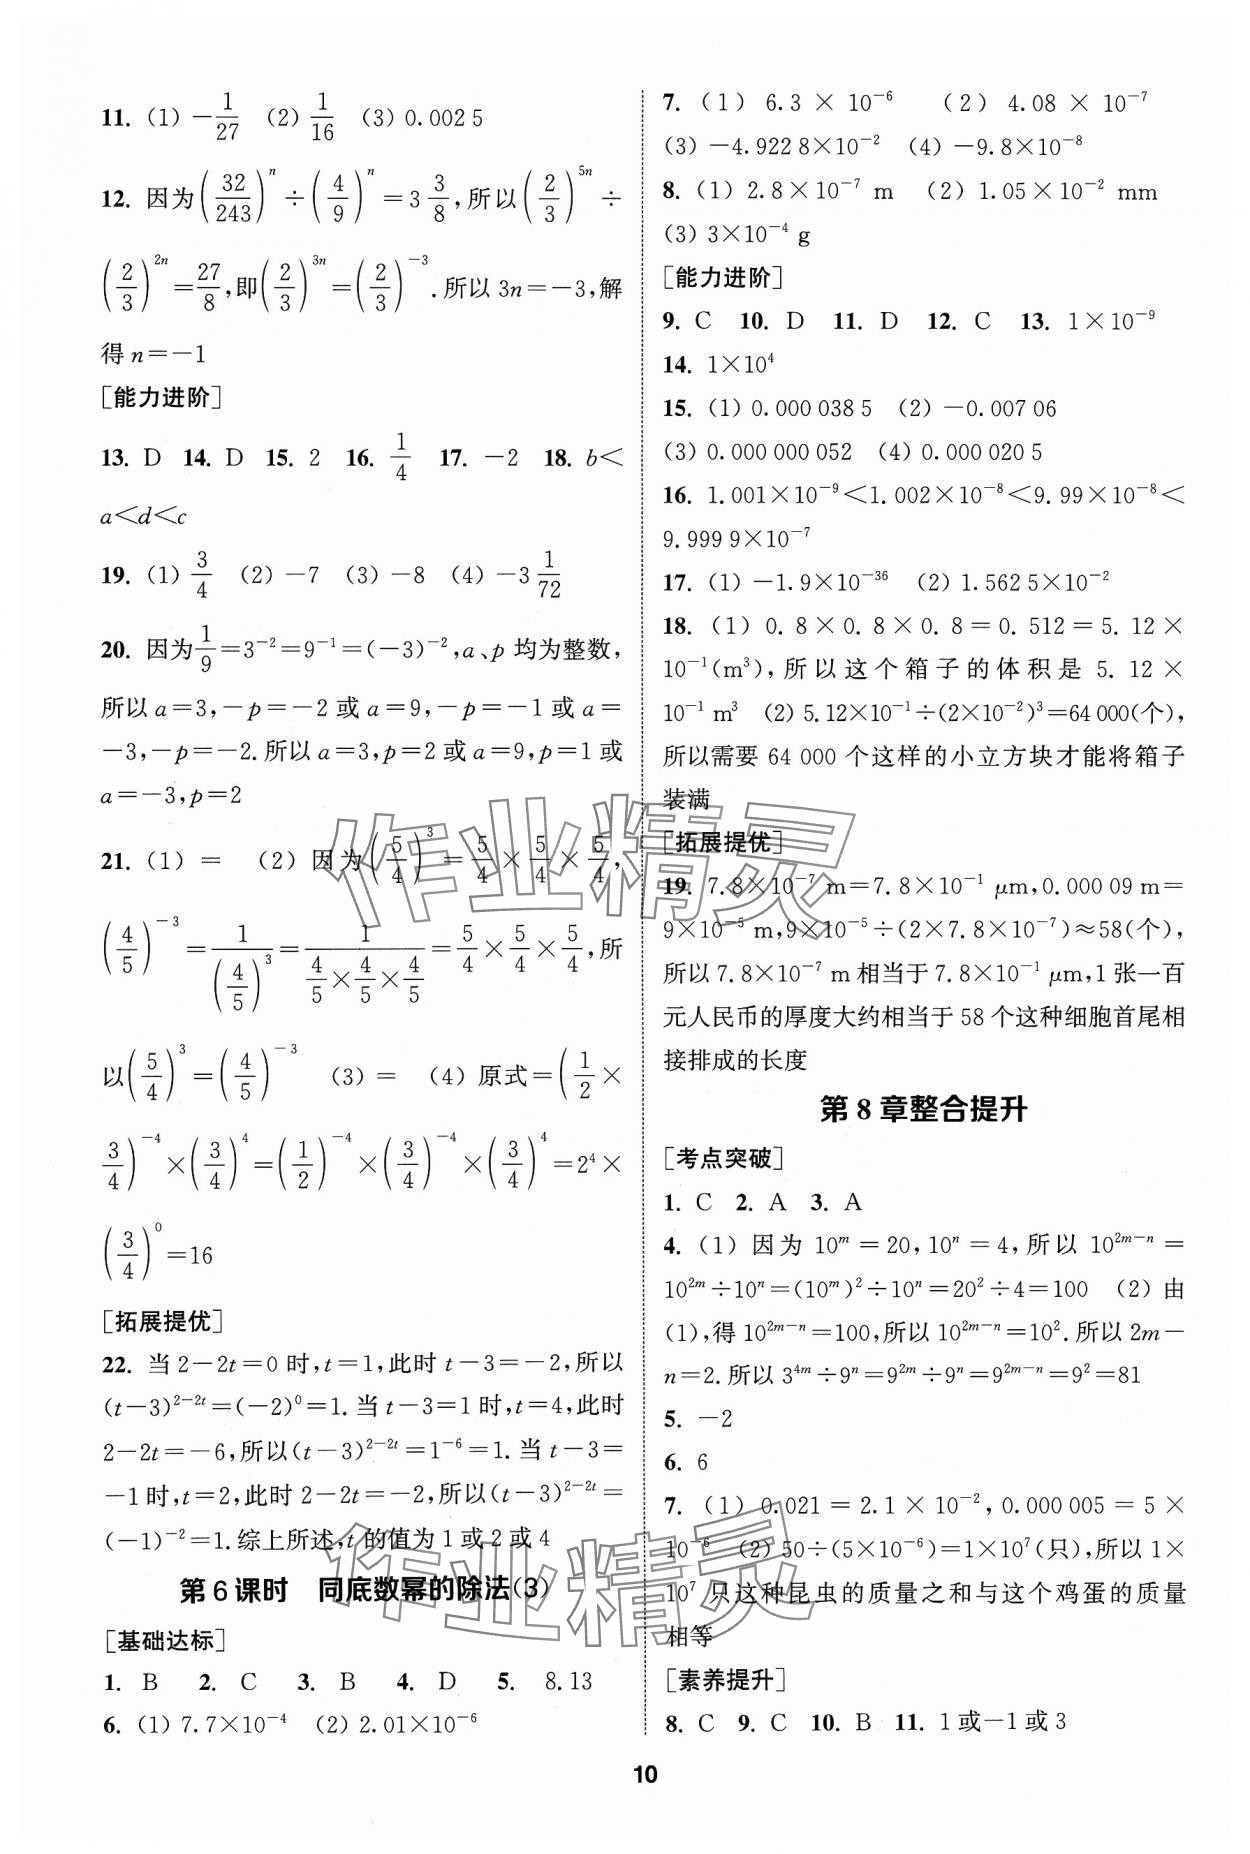 11. (1) −1/27 (2) 1/16 (3) 0.002 5
12. 因为(32/243)^n÷(4/9)^n=3 3/8,所以(2/3)^{5n}÷
(2/3)^{2n}=27/8,即(2/3)^{3n}=(2/3)^{−3}.所以 3n=−3,解
得 n=−1
[能力进阶]
13. D 14. D 15. 2 16. 1/4 17. −2 18. b<
a<d<c
19. (1) 3/4 (2) −7 (3) −8 (4) −3 1/72
20. 因为1/9=3⁻²=9⁻¹=(−3)⁻²,a、p 均为整数,
所以 a=3,−p=−2 或 a=9,−p=−1 或 a=
−3,−p=−2.所以 a=3,p=2 或 a=9,p=1 或
a=−3,p=2
21. (1) = (2) 因为(5/4)³=5/4×5/4×5/4,
(4/5)⁻³=1/(4/5)³=1/(4/5×4/5×4/5)=5/4×5/4×5/4,所
以(5/4)³=(4/5)⁻³ (3) = (4) 原式=(1/2×
3/4)⁻⁴×(3/4)⁴=(1/2)⁻⁴×(3/4)⁻⁴×(3/4)⁴=2⁴×
(3/4)⁰=16
[拓展提优]
22. 当 2−2t=0 时,t=1,此时 t−3=−2,所以
(t−3)^{2−2t}=(−2)⁰=1.当 t−3=1 时,t=4,此时
2−2t=−6,所以(t−3)^{2−2t}=1⁻⁶=1.当 t−3=
−1时,t=2,此时 2−2t=−2,所以(t−3)^{2−2t}=
(−1)⁻²=1.综上所述,t 的值为 1 或 2 或 4
第 6 课时 同底数幂的除法(3)
[基础达标]
1. B 2. C 3. B 4. D 5. 8.13
6. (1) 7.7×10⁻⁴ (2) 2.01×10⁻⁶
7. (1) 6.3×10⁻⁶ (2) 4.08×10⁻⁷
(3) −4.922 8×10⁻² (4) −9.8×10⁻⁸
8. (1) 2.8×10⁻⁷ m (2) 1.05×10⁻² mm
(3) 3×10⁻⁴ g
[能力进阶]
9. C 10. D 11. D 12. C 13. 1×10⁻⁹
14. 1×10⁴
15. (1) 0.000 038 5 (2) −0.007 06
(3) 0.000 000 052 (4) 0.000 020 5
16. 1.001×10⁻⁹<1.002×10⁻⁸<9.99×10⁻⁸<
9.999 9×10⁻⁷
17. (1) −1.9×10⁻³⁶ (2) 1.562 5×10⁻²
18. (1) 0.8×0.8×0.8=0.512=5.12×
10⁻¹(m³),所以这个箱子的体积是 5.12×
10⁻¹ m³ (2) 5.12×10⁻¹÷(2×10⁻²)³=64 000(个),
所以需要 64 000 个这样的小立方块才能将箱子
装满
[拓展提优]
19. 7.8×10⁻⁷ m=7.8×10⁻¹ μm,0.000 09 m=
9×10⁻⁵ m,9×10⁻⁵÷(2×7.8×10⁻⁷)≈58(个),
所以 7.8×10⁻⁷ m 相当于 7.8×10⁻¹ μm,1 张一百
元人民币的厚度大约相当于 58 个这种细胞首尾相
接排成的长度
第 8 章整合提升
[考点突破]
1. C 2. A 3. A
4. (1) 因为 10^m=20,10^n=4,所以 10^{2m−n}=
10^{2m}÷10^n=(10^m)²÷10^n=20²÷4=100 (2) 由
(1),得 10^{2m−n}=100,所以 10^{2m−n}=10².所以 2m−
n=2.所以 3^{4m}÷9^n=9^{2m}÷9^n=9^{2m−n}=9²=81
5. −2
6. 6
7. (1) 0.021=2.1×10⁻²,0.000 005=5×
10⁻⁶ (2) 50÷(5×10⁻⁶)=1×10⁷(只),所以 1×
10⁷ 只这种昆虫的质量之和与这个鸡蛋的质量
相等
[素养提升]
8. C 9. C 10. B 11. 1 或−1 或 3
10
作业精灵
作业精灵